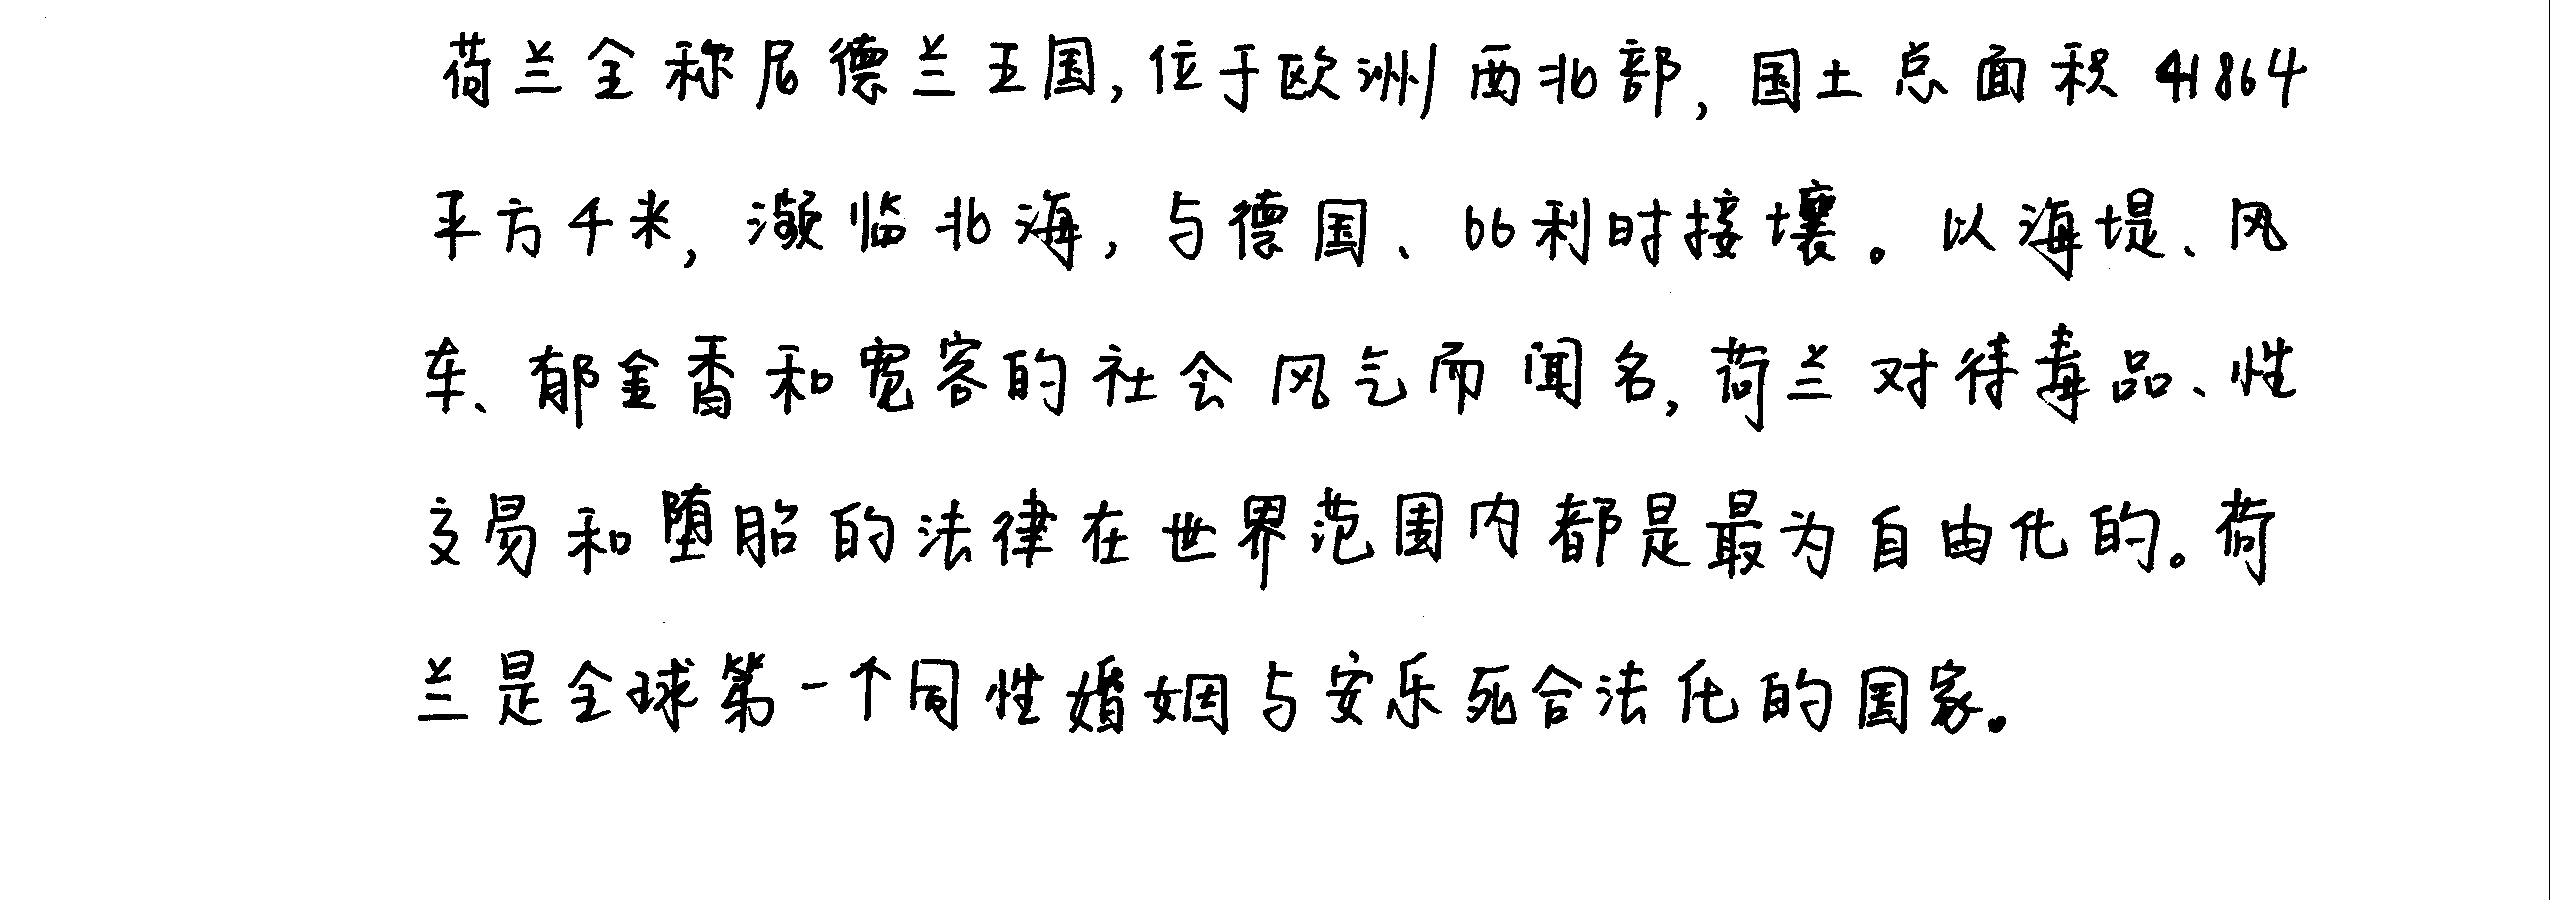 荷兰全称尼德兰王国,位于欧洲西北部,国土总面积41864
平方千米,濒临北海,与德国、比利时接壤。以海堤、风
车、郁金香和宽容的社会风气而闻名,荷兰对待毒品、性
交易和堕胎的法律在世界范围内都是最为自由化的。荷
兰是全球第一个同性婚姻与安乐死合法化的国家。